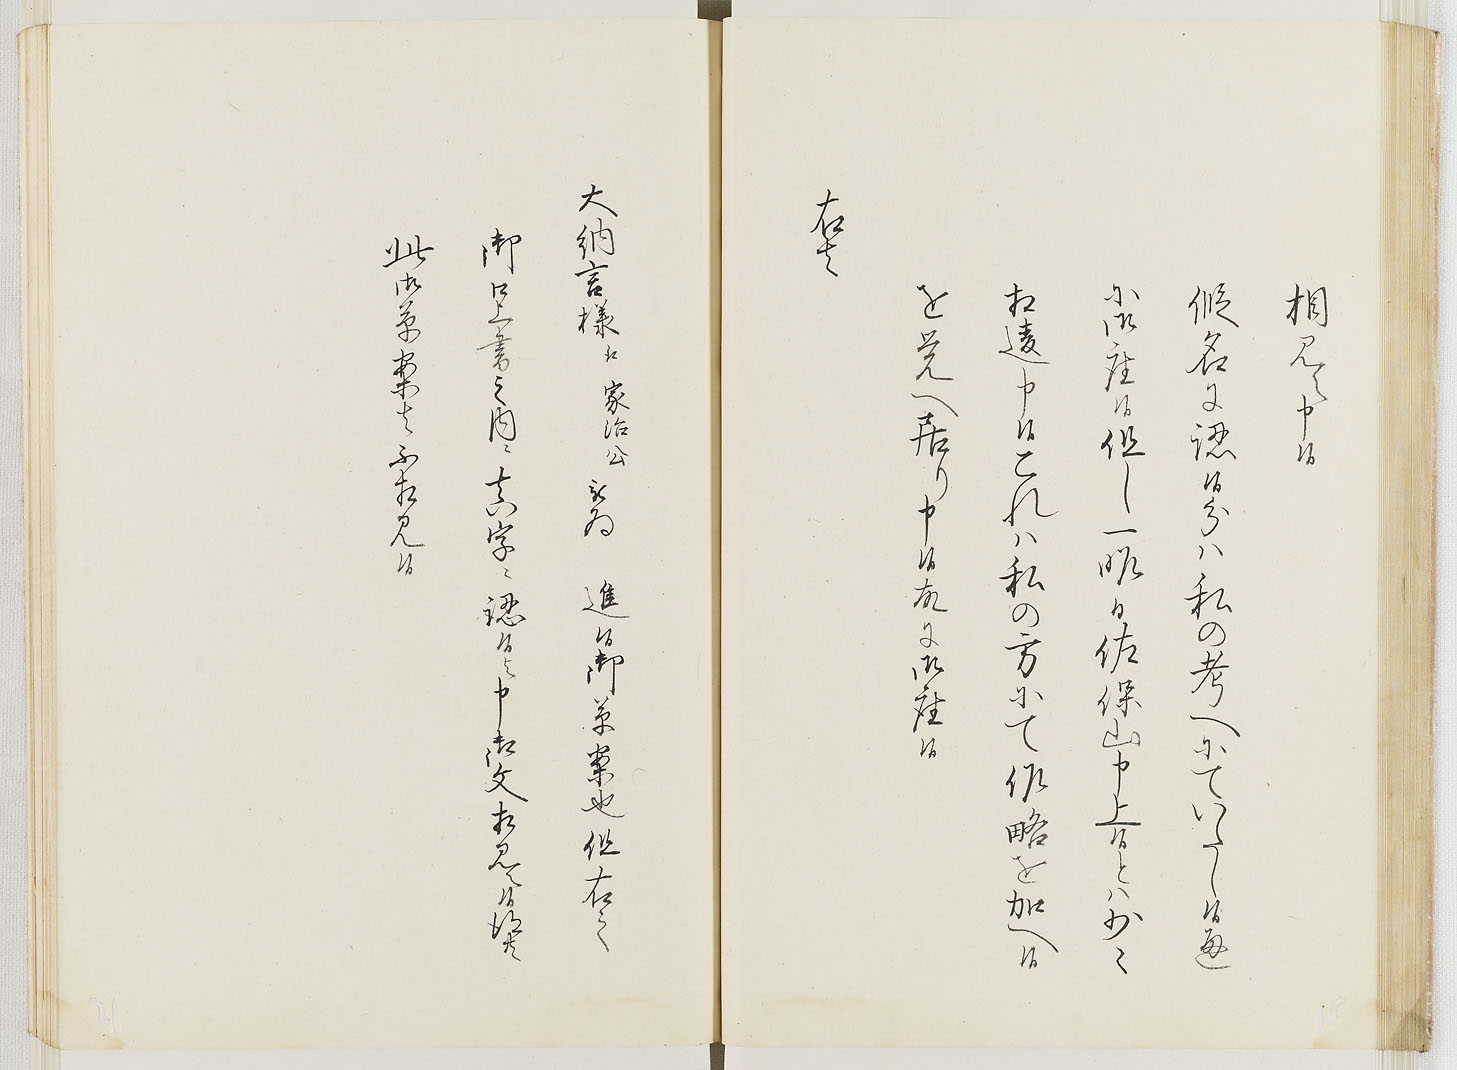 相見え申候
假名に認候分ハ私の考へにていたし候通
に御座候但し一昨日佐保山申上候とハ少々
相違申候これハ私の方にて作略を加へ候
を覚へ居り申候故に御座候
右者
大納言様江家治公ゟ為進候御草案也但右之
御口上書之内ニ真字ニ認候と申御文相見え候得共
此御草案者不相見候